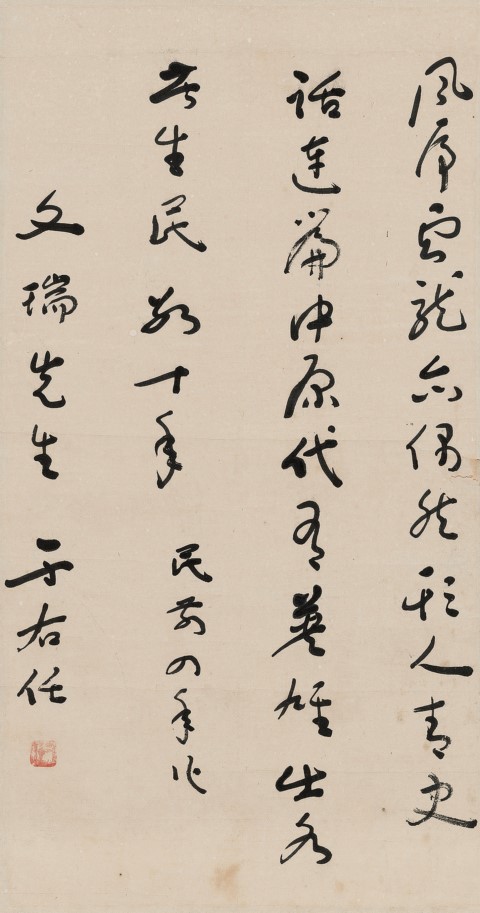 風虎雲龍亦偶然欺人青史
話連篇中原代有英雄出各
苦生民數十年 民前四年作
文瑞先生 于右任